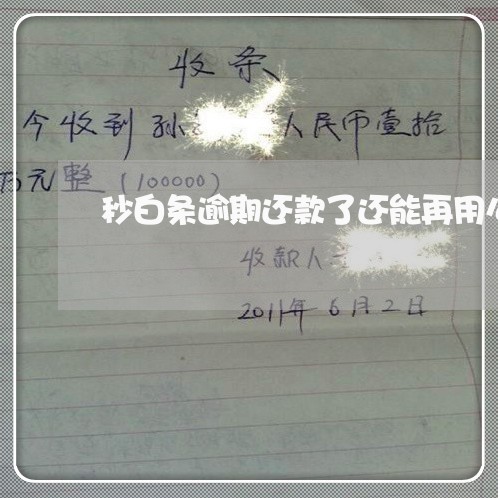 收条
今收到孙 人民币壹拾
万元整(100000)
秒白条逾期还款了还能再用
收款人
2011年6月2日